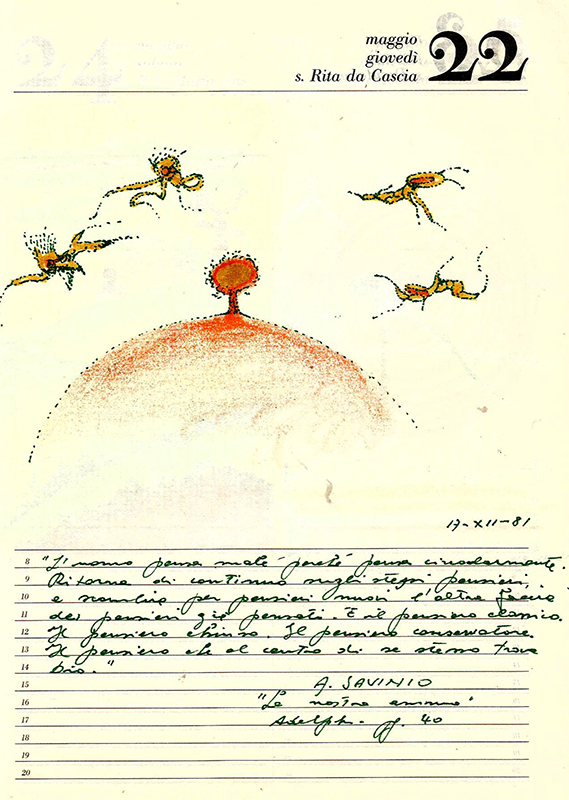 maggio
giovedì
s. Rita da Cascia
22
17-XII-81
8 "L'uomo pensa male perché pensa circolarmente.
9 Ritorna di continuo sugli stessi pensieri,
10 e scambia per pensieri nuovi l'altra faccia
11 dei pensieri già pensati. È il pensiero classico.
12 Il pensiero chiuso. Il pensiero conservatore.
13 Il pensiero che al centro di se stesso trova
14 Dio."
15 A. SAVINIO
16 "La nostra anima"
17 Adelphi - p. 40
18
19
20